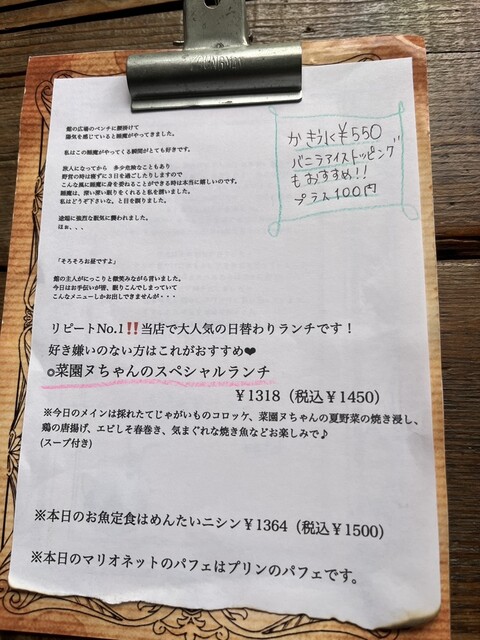 館の広場のベンチに腰掛けて
陽気を感じていると睡魔がやってきました。
私はこの睡魔がやってくる瞬間がとても好きです。
旅人になってから 多少危険なこともあり
野営の時は寝ずに3日を過ごしたりしますので
こんな風に睡魔に身を委ねることができる時は本当に嬉しいのです。
睡魔は、深い深い眠りをくれると私を誘いました。
私はどうぞ下さいな。と目を瞑りました。
途端に強烈な眠気に襲われました。
はぉ、、、
「そろそろお昼ですよ」
館の主人がにっこりと微笑みながら言いました。
今日はお手伝いが皆、眠りこんでしまっていて
こんなメニューしかお出しできませんが・・・
かき氷¥550
バニラアイストッピング
もおすすめ!!
プラス100円
リピートNo.1‼️当店で大人気の日替わりランチです！
好き嫌いのない方はこれがおすすめ❤
◎菜園ヌちゃんのスペシャルランチ
￥1318（税込￥1450）
※今日のメインは採れたてじゃがいものコロッケ、菜園ヌちゃんの夏野菜の焼き浸し、
鶏の唐揚げ、エビしそ春巻き、気まぐれな焼き魚などお楽しみで♪
(スープ付き)
※本日のお魚定食はめんたいニシン￥1364（税込￥1500）
※本日のマリオネットのパフェはプリンのパフェです。